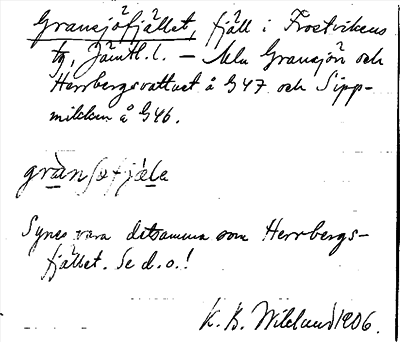 Gransjöfjället, fjäll i Frostvikens
tg, Jämtl. l. – Mla Gransjön och
Herrbergsvattnet å G47 och Sipp-
mikken å G46.
gràn ſø fjæla
Synes vara detsamma som Herrbergs-
fjället. Se d. o.!
K. B. Wiklund 1906.